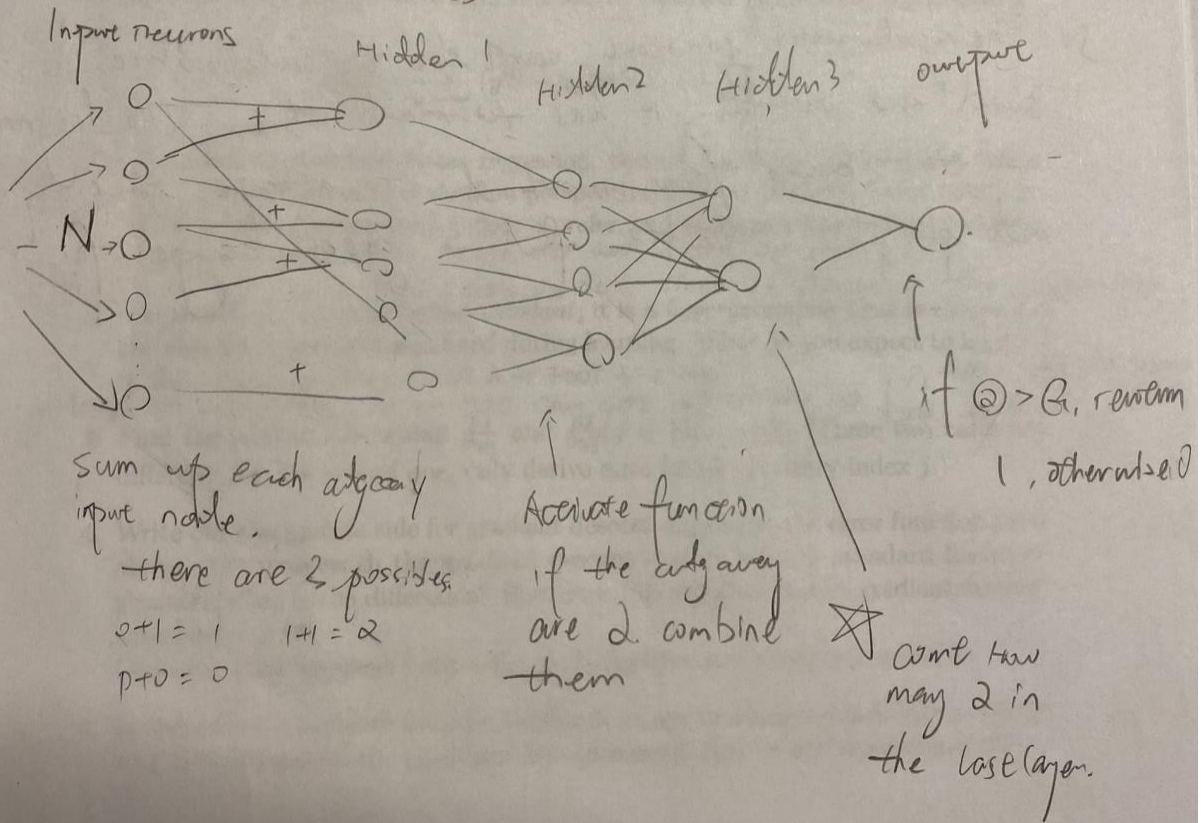 Input neurons
Hidden 1
Hidden2
Hidden3
output
N
+
+
+
+
sum up each
input node.
there are 3 possibles.
0+1 = 1 1+1 = 2
0+0 = 0
Activate function
if the
are 2. combine
them
count How
may 2 in
the last layer.
if ② > , return
1, otherwise 0